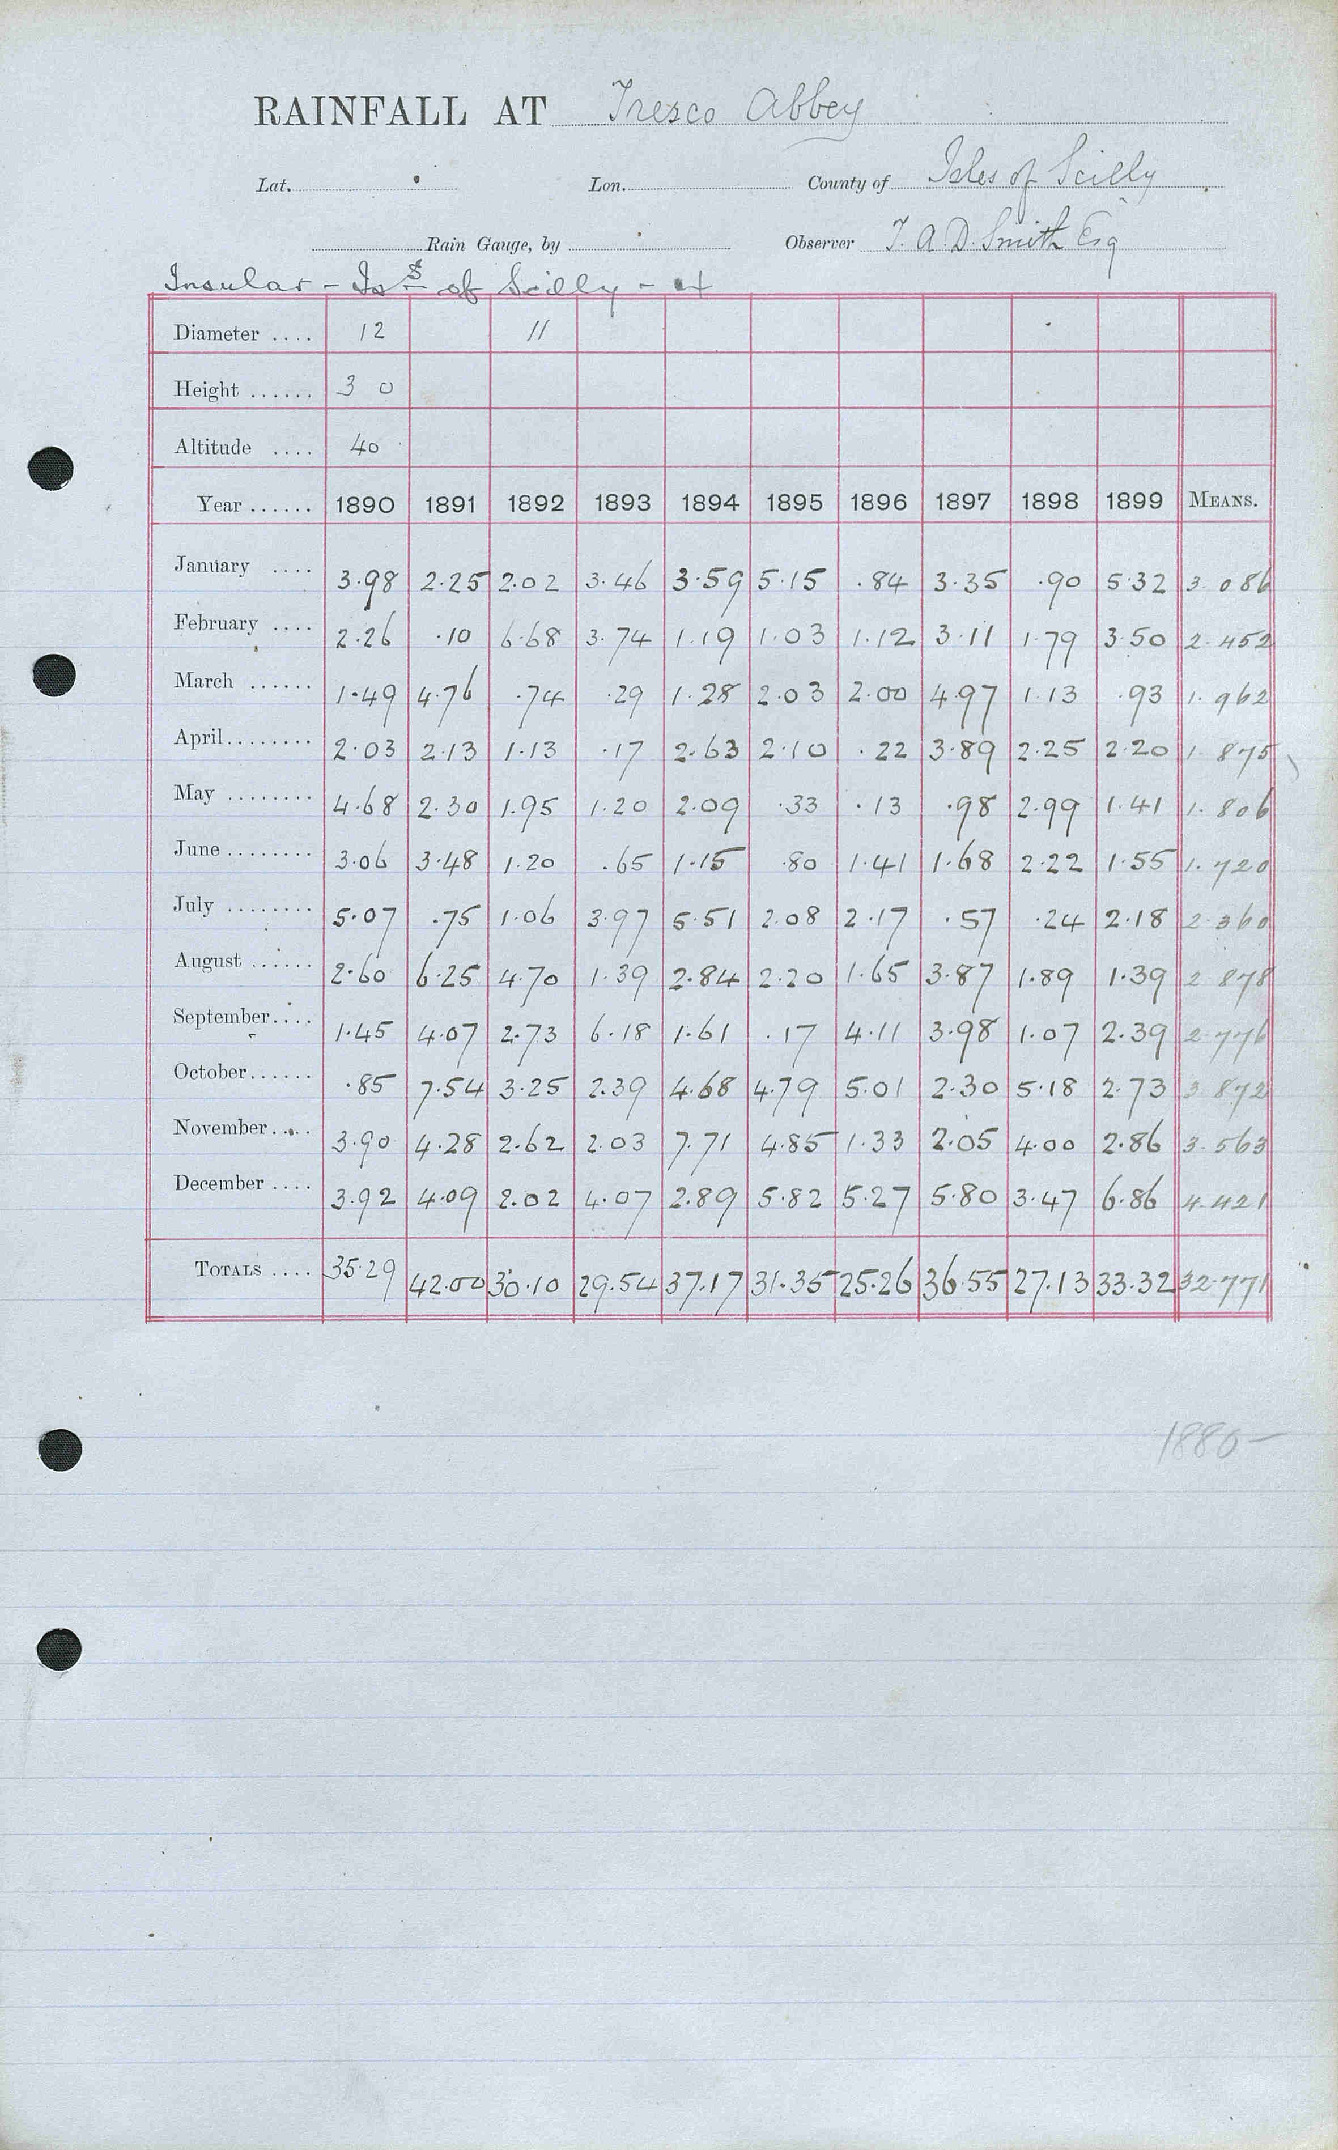 RAINFALL AT Tresco Abbey
Lat. Lon. County of Isles of Scilly
Rain Gauge, by Observer T. A. D. Smith Esq
Insular - Is^s of Scilly -
Diameter .... 12 11
Height ...... 3 0
Altitude .... 40
Year ...... 1890 1891 1892 1893 1894 1895 1896 1897 1898 1899 MEANS.
January .... 3.98 2.25 2.02 3.46 3.59 5.15 .84 3.35 .90 5.32 3.086
February .... 2.26 .10 6.68 3.74 1.19 1.03 1.12 3.11 1.79 3.50 2.452
March ...... 1.49 4.76 .74 .29 1.28 2.03 2.00 4.97 1.13 .93 1.962
April........ 2.03 2.13 1.13 .17 2.63 2.10 .22 3.89 2.25 2.20 1.875
May ........ 4.68 2.30 1.95 1.20 2.09 .33 .13 .98 2.99 1.41 1.806
June ........ 3.06 3.48 1.20 .65 1.15 .80 1.41 1.68 2.22 1.55 1.720
July ........ 5.07 .75 1.06 3.97 5.51 2.08 2.17 .57 .24 2.18 2.360
August ...... 2.60 6.25 4.70 1.39 2.84 2.20 1.65 3.87 1.89 1.39 2.878
September.... 1.45 4.07 2.73 6.18 1.61 .17 4.11 3.98 1.07 2.39 2.776
October...... .85 7.54 3.25 2.39 4.68 4.79 5.01 2.30 5.18 2.73 3.872
November.... 3.90 4.28 2.62 2.03 7.71 4.85 1.33 2.05 4.00 2.86 3.563
December .... 3.92 4.09 2.02 4.07 2.89 5.82 5.27 5.80 3.47 6.86 4.421
TOTALS .... 35.29 42.00 30.10 29.54 37.17 31.35 25.26 36.55 27.13 33.32 32.771
1880-